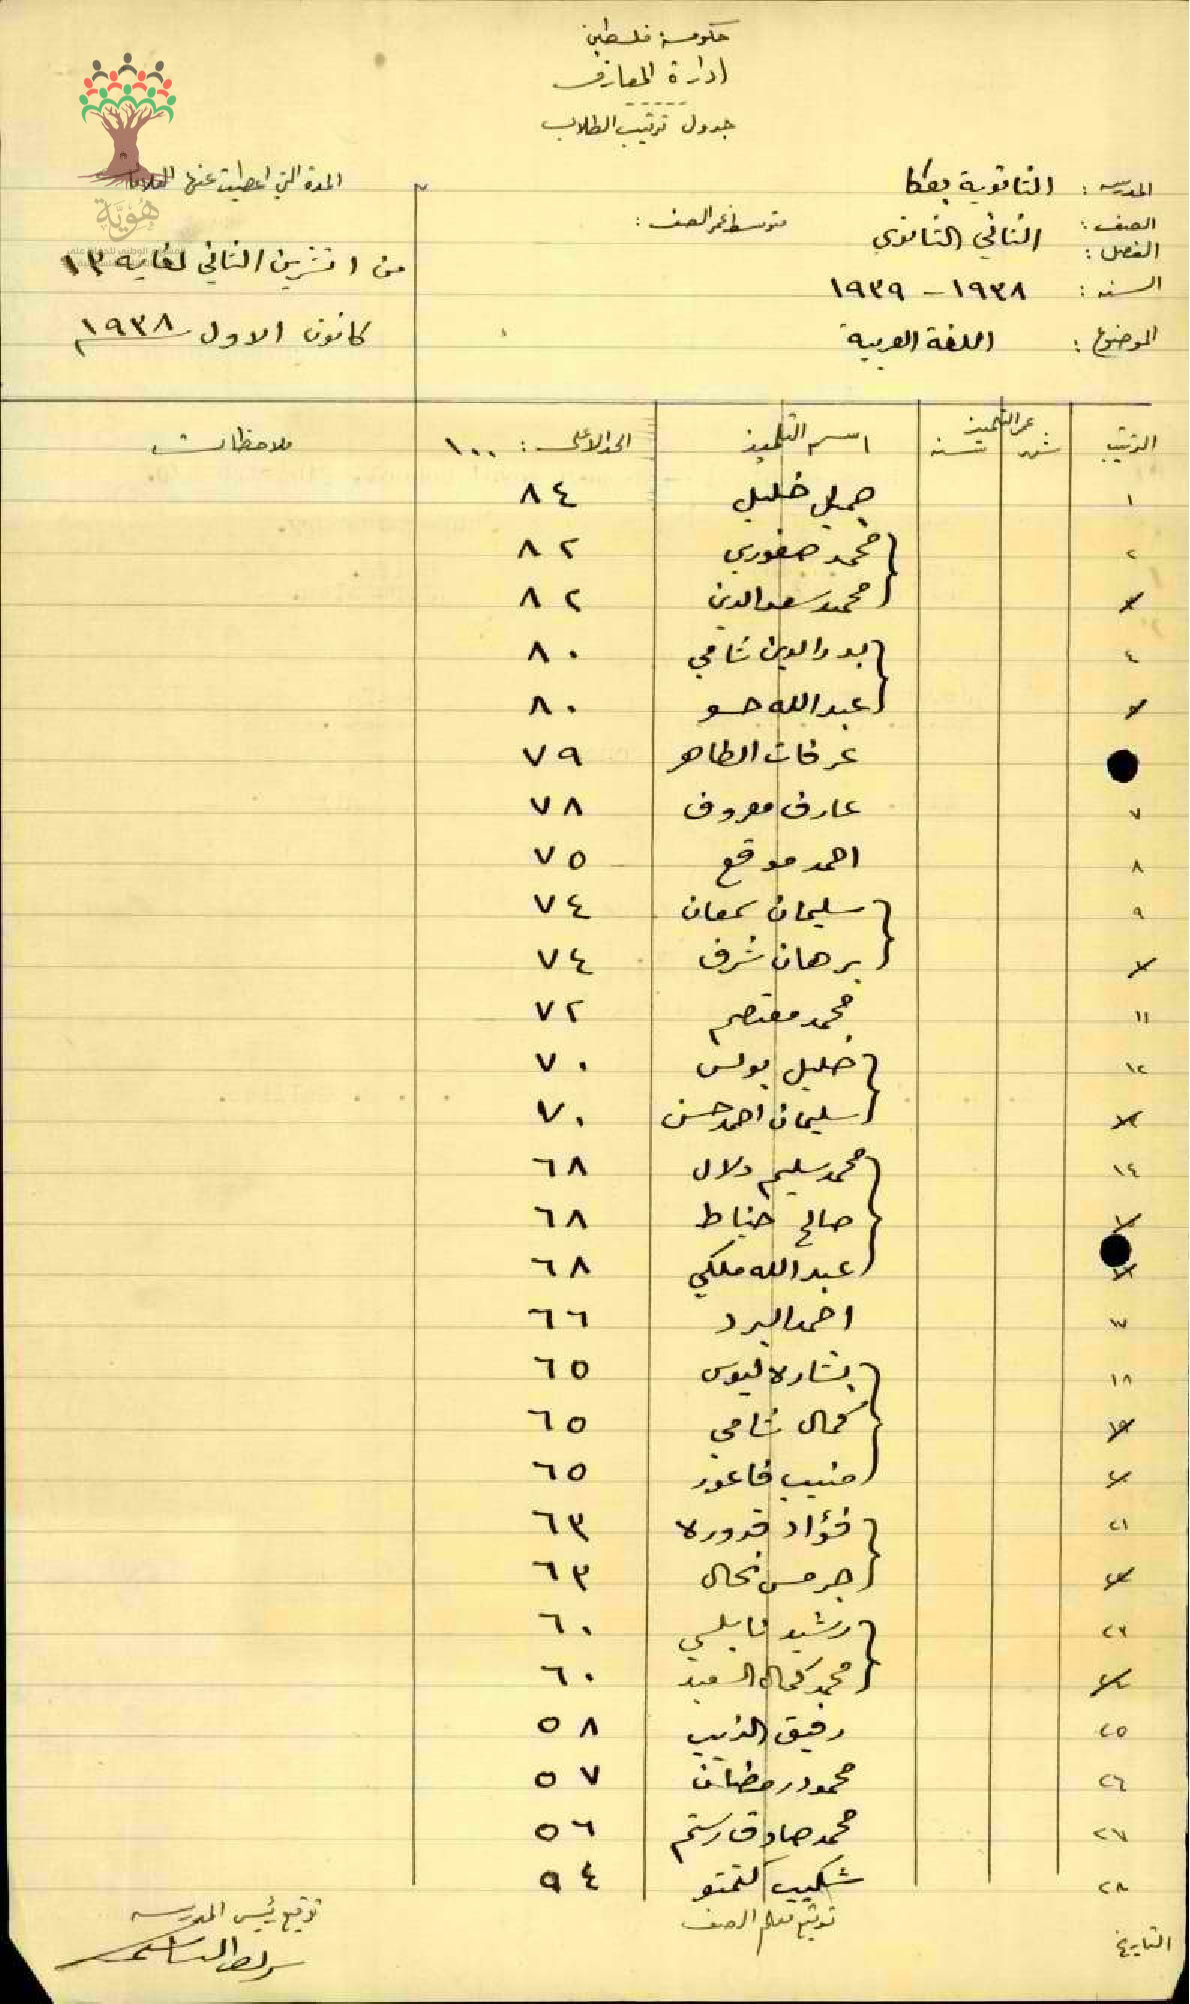 حكومة فلسطين
ادارة المعارف
جدول ترتيب الطلاب
المدرسة : الثانوية بعكا
المدة التي اعطيت عنها العلامات
الصف : الثاني الثانوي
الفصل :
متوسط عمر الصف :
من ١ تشرين الثاني لغاية ١٣
السنة : ١٩٣٨ - ١٩٣٩
كانون الاول ١٩٣٨
الموضوع : اللغة العربية
هُوِيَّة
الترتيب عمر التلميذ شهر سنة اسم التلميذ الحد الاعلى : ١٠٠ ملاحظات
١ جميل خليل ٨٤
٢ محمد صفوري ٨٢
محمد سعد الدين ٨٢
٤ بدر الدين شامي ٨٠
عبد الله حسو ٨٠
عرفات الطاهر ٧٩
٧ عارف معروف ٧٨
٨ احمد موقع ٧٥
٩ سليمان سمعان ٧٤
برهان شرف ٧٤
١١ محمد معتصم ٧٢
١٢ خليل بولس ٧٠
سليمان احمد حسن ٧٠
١٤ محمد سليم دلال ٦٨
صالح خياط ٦٨
عبد الله ملكي ٦٨
١٧ احمد البرد ٦٦
١٨ بشارة ليوس ٦٥
كمال شامي ٦٥
منيب فاعور ٦٥
٢١ فؤاد قدورة ٦٣
جرمس نحال ٦٣
٢٣ رشيد نابلسي ٦٠
محمد كمال السعيد ٦٠
٢٥ رفيق الذيب ٥٨
٢٦ محمود رمضان ٥٧
٢٧ محمد صادق رستم ٥٦
٢٨ شكيب كتمتو ٥٤
التاريخ توقيع معلم الصف توقيع رئيس المدرسة